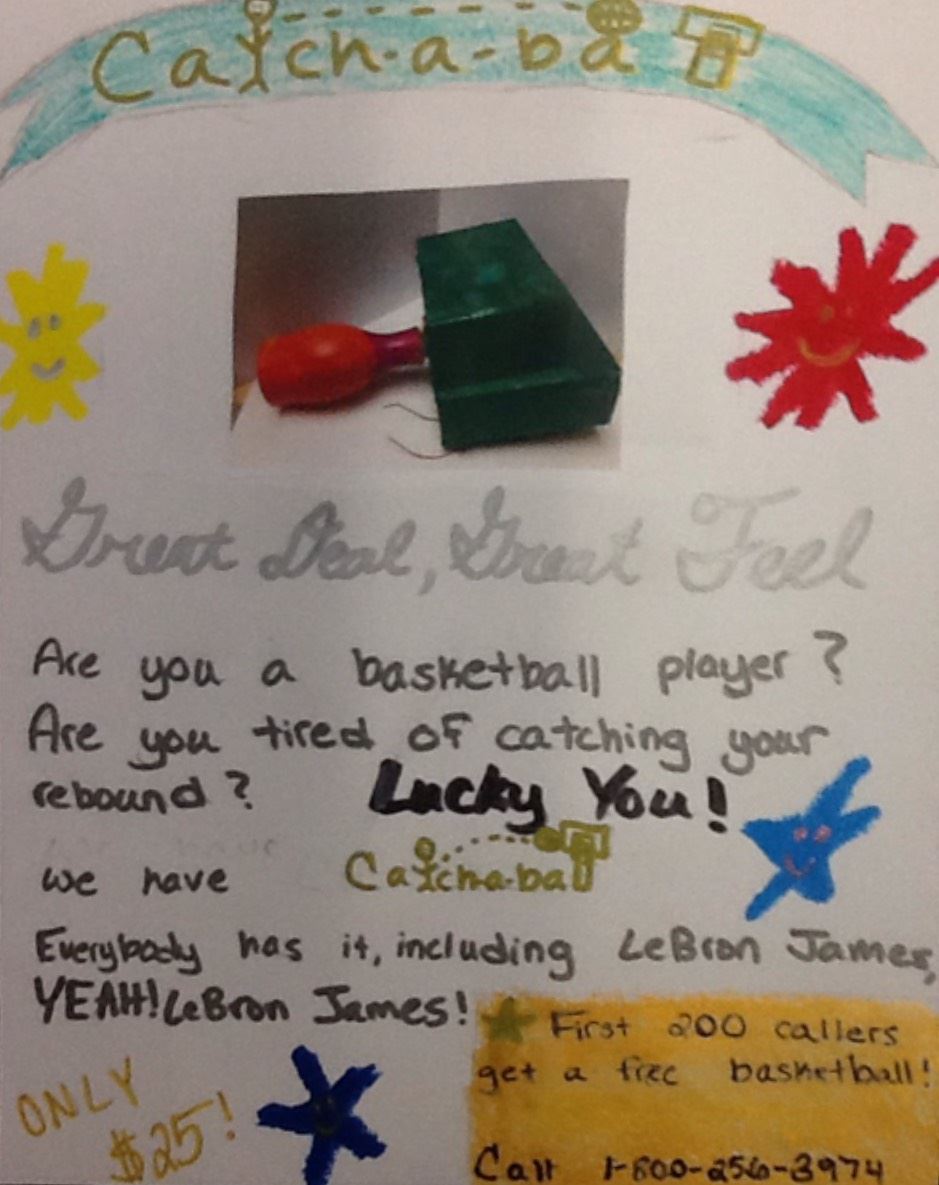 Catch-a-ball
Great Deal, Great Feel
Are you a basketball player?
Are you tired of catching your
rebound? Lucky You!
we have Catch-a-ball
Everybody has it, including LeBron James,
YEAH! LeBron James!
First 200 callers
get a free basketball!
ONLY
$25!
Call 1-800-256-3974